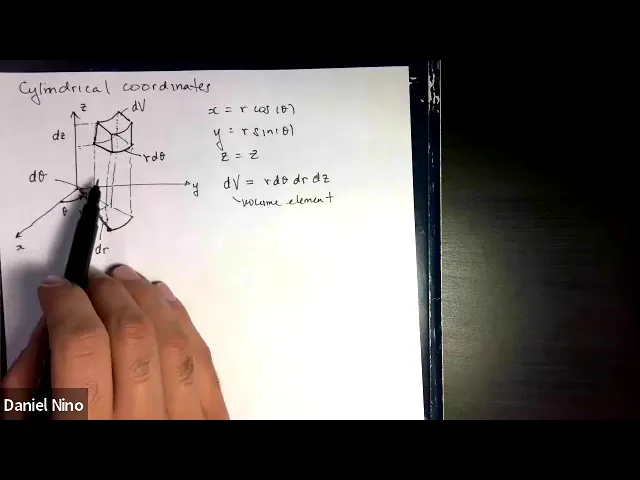 Cylindrical coordinates
z
dV
dz
rdθ
dθ
y
θ
x
dr
x = r cos(θ)
y = r sin(θ)
z = z
dV = r dθ dr dz
volume element
Daniel Nino